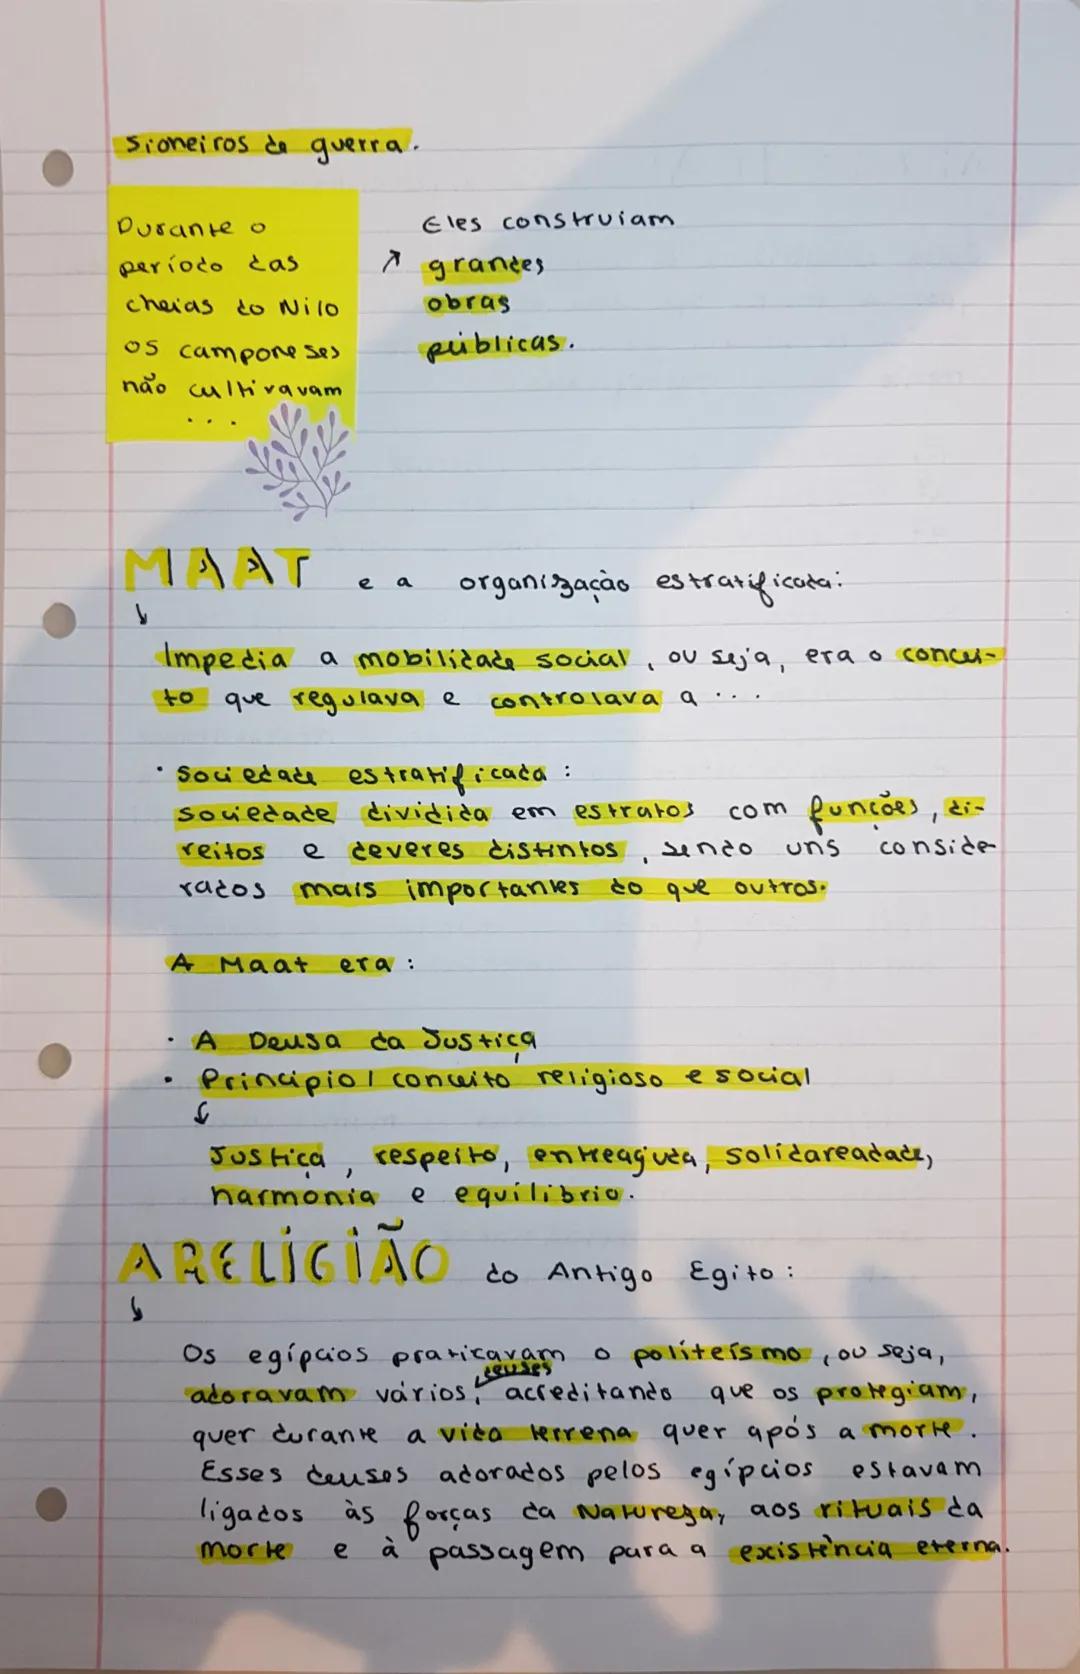 sioneiros de guerra.
Durante o
período das
cheias do Nilo
os camponeses
não cultivavam
...
Eles construiam
↗ grandes
obras
públicas.
MAAT e a organização estratificada:
↓
Impedia a mobilidade social, ou seja, era o concei-
to que regulava e controlava a ...
· Sociedade estratificada:
sociedade dividida em estratos com funções, di-
reitos e deveres distintos, sendo uns conside-
rados mais importantes do que outros.
A Maat era:
· A Deusa da Justiça
· Princípio / conceito religioso e social
↓
Justiça, respeito, entreaguda, solidareadade,
harmonia e equilíbrio.
A RELIGIÃO do Antigo Egito:
↓
Os egípcios praticavam o politeísmo, ou seja,
adoravam vários deuses, acreditando que os protegiam,
quer durante a vida terrena quer após a morte.
Esses deuses adorados pelos egípcios estavam
ligados às forças da Natureza, aos rituais da
morte e à passagem para a existência eterna.